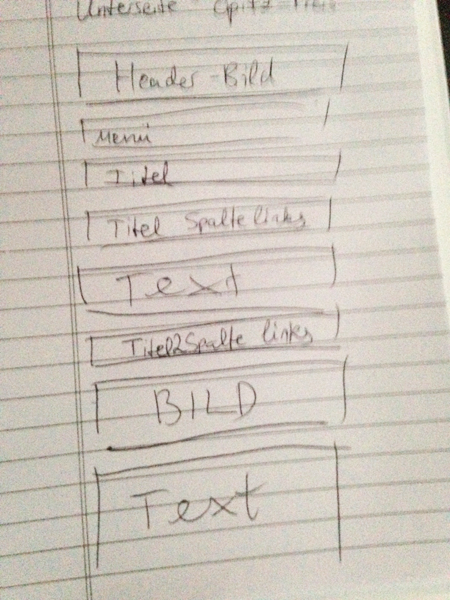 Unterseite
Header-Bild
Menü
Titel
Titel Spalte links
Text
Titel2Spalte links
BILD
Text